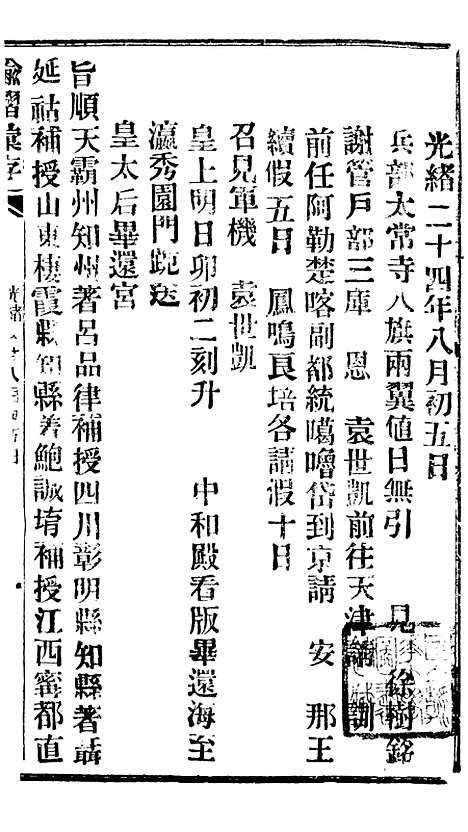 光緒二十四年八月初五日
兵部太常寺八旗兩翼值日無引　見　徐樹銘
謝管戶部三庫　恩　袁世凱前往天津請　訓
前任阿勒楚喀副都統噶嚕岱到京請　安　那王
續假五日　鳳鳴良培各請假十日
召見軍機　袁世凱
皇上明日卯初二刻升　中和殿看版畢還海至
瀛秀園門跪送
皇太后畢還宮
旨順天霸州知州著呂品律補授四川彰明縣知縣著聶
延祜補授山東棲霞縣知縣著鮑誠堉補授江西寧都直
諭摺彙存